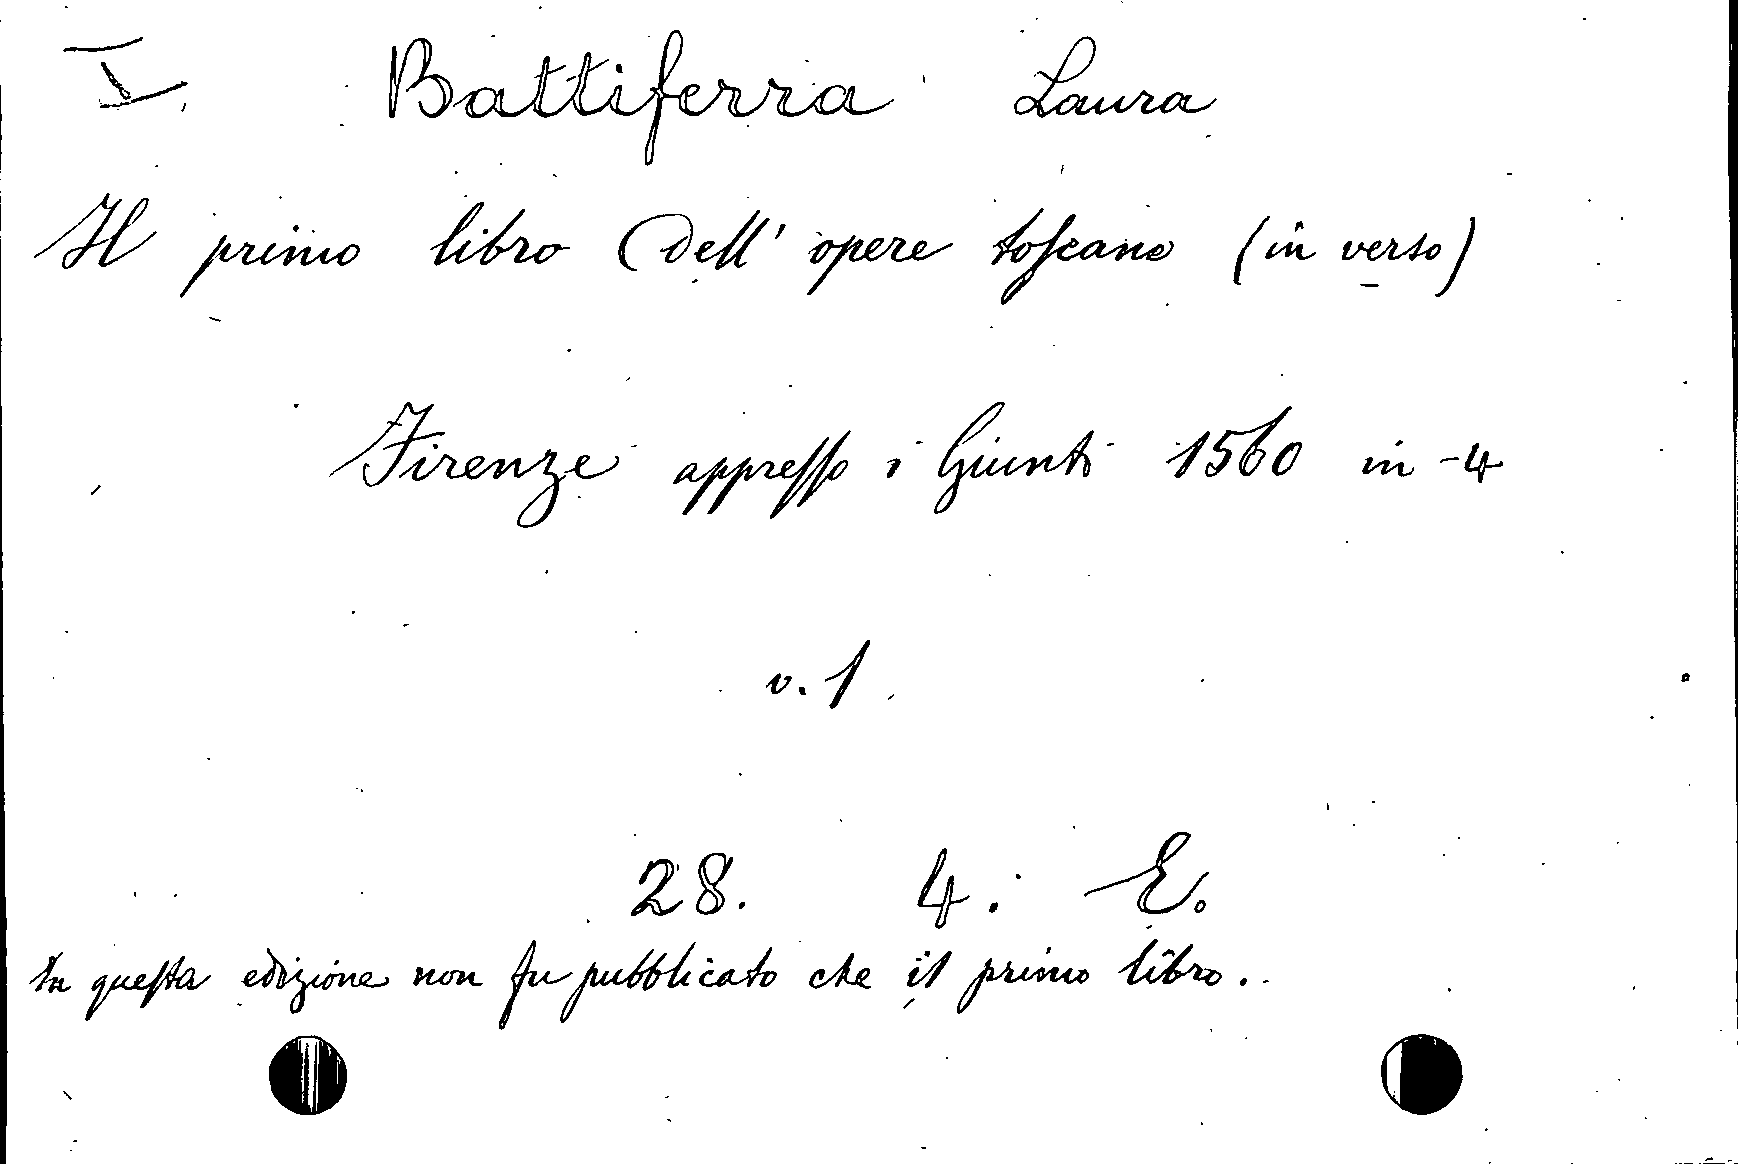 Battiferra Laura
Il primo libro dell' opere toscane (in verso)
Firenze appresso i Giunti 1560 in-4
v. 1
28. 4. E.
In questa edizione non fu pubblicato che il primo libro.